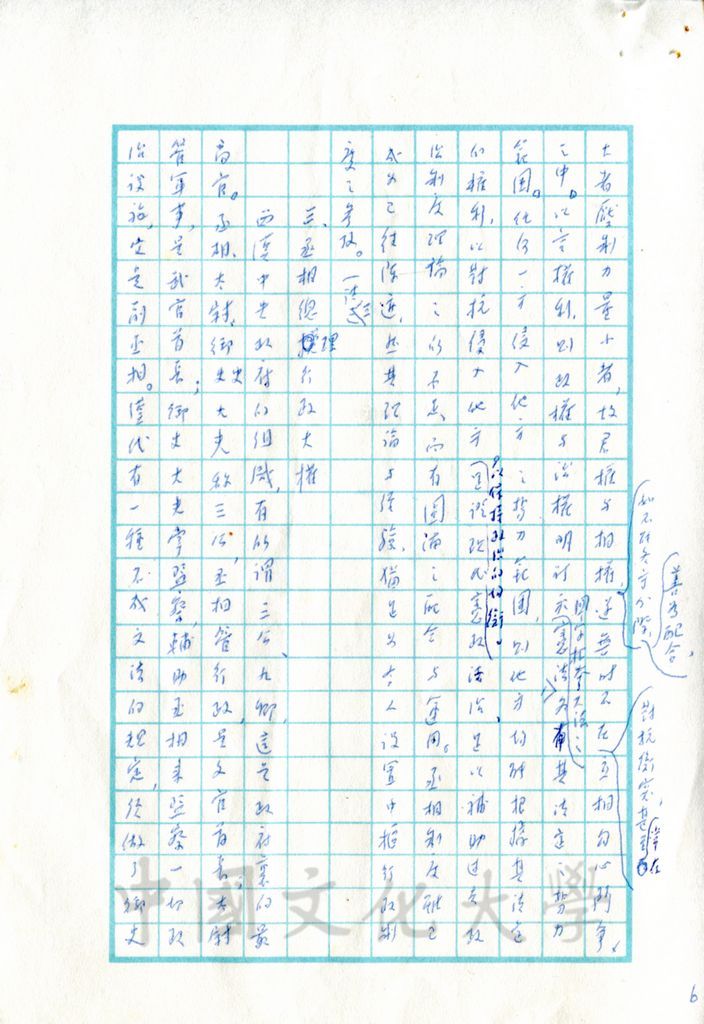 大者壓制力量小者，故君權與相權，遂無時不在互相勾心鬥爭
之中。以言權利，則政權與治權明訂於憲法為有其法定勢力
範圍。任何一方侵入他方之勢力範圍，則他方均能根據其法定
的權利，以對抗侵入他方，以保持政治的均衡。是以補助過去政
治制度理論之所不足，而有圓滿之配合與運用。丞相制度雖已
成為已往陳迹，然其理論與經驗，猶足為今人設置中樞行政制
度之參考。
三、丞相總理行政大權
西漢中央政府的組織，有所謂三公、九卿，這是政府裏的最
高官。丞相、太尉、御史大夫稱三公，丞相管行政，是文官首長；太尉
管軍事，是武官首長；御史大夫掌監察，輔助丞相來監察一切政
治設施，它是副丞相。漢代有一種不成文法的規定，須做了御史
善為配合，
對抗衝突甚至
常在
中國文化大學
6